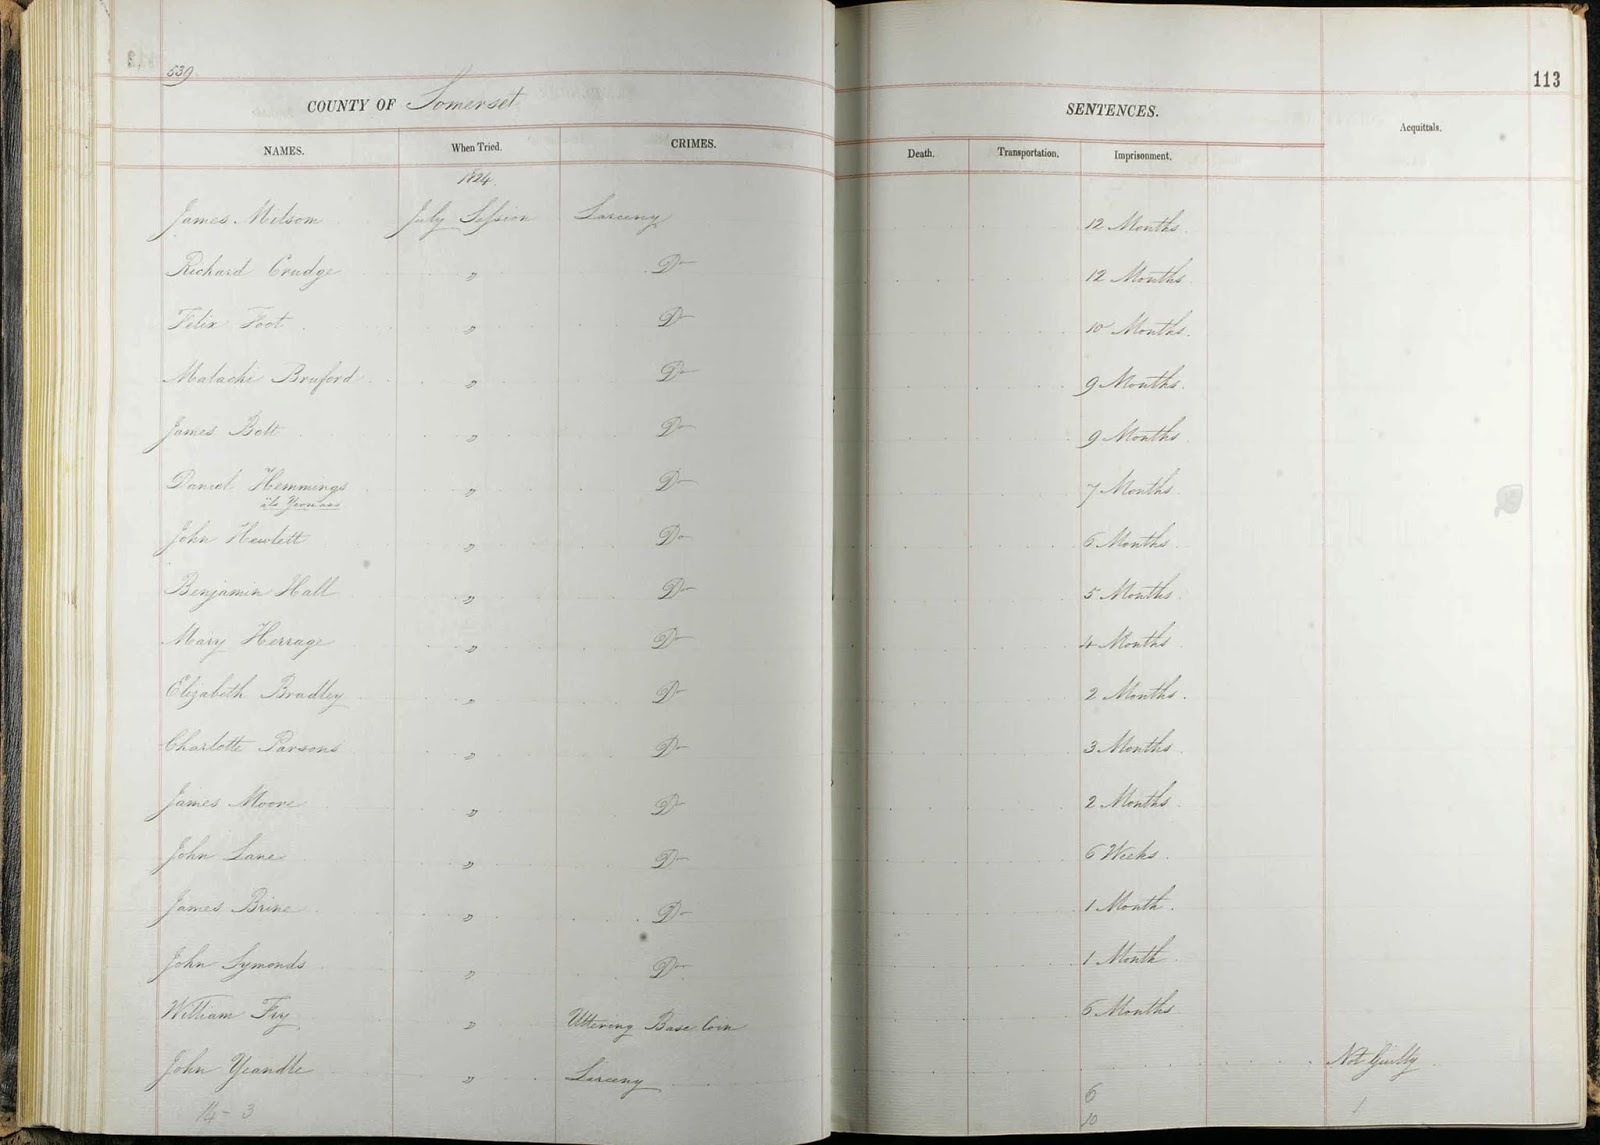 539
113
COUNTY OF Somerset
SENTENCES.
NAMES. When Tried. CRIMES. Death. Transportation. Imprisonment. Acquittals.
1824.
James Milsom July Session Larceny 12 Months.
Richard Crudge " Do 12 Months
Felix Foot " Do 10 Months.
Malachi Bruford " Do 9 Months.
James Bett " Do 9 Months
Daniel Hemmings " Do 7 Months
als
John Hewlett " Do 6 Months
Benjamin Hall " Do 5 Months
Mary Herrage " Do 4 Months
Elizabeth Bradley " Do 2 Months.
Charlotte Parsons " Do 3 Months
James Moore " Do 2 Months
John Lane " Do 6 Weeks.
James Brine " Do 1 Month.
John Symonds " Do 1 Month
William Fry " Uttering Base Coin 6 Months
John Yeandle " Larceny Not Guilty
14 - 3 6 1
10